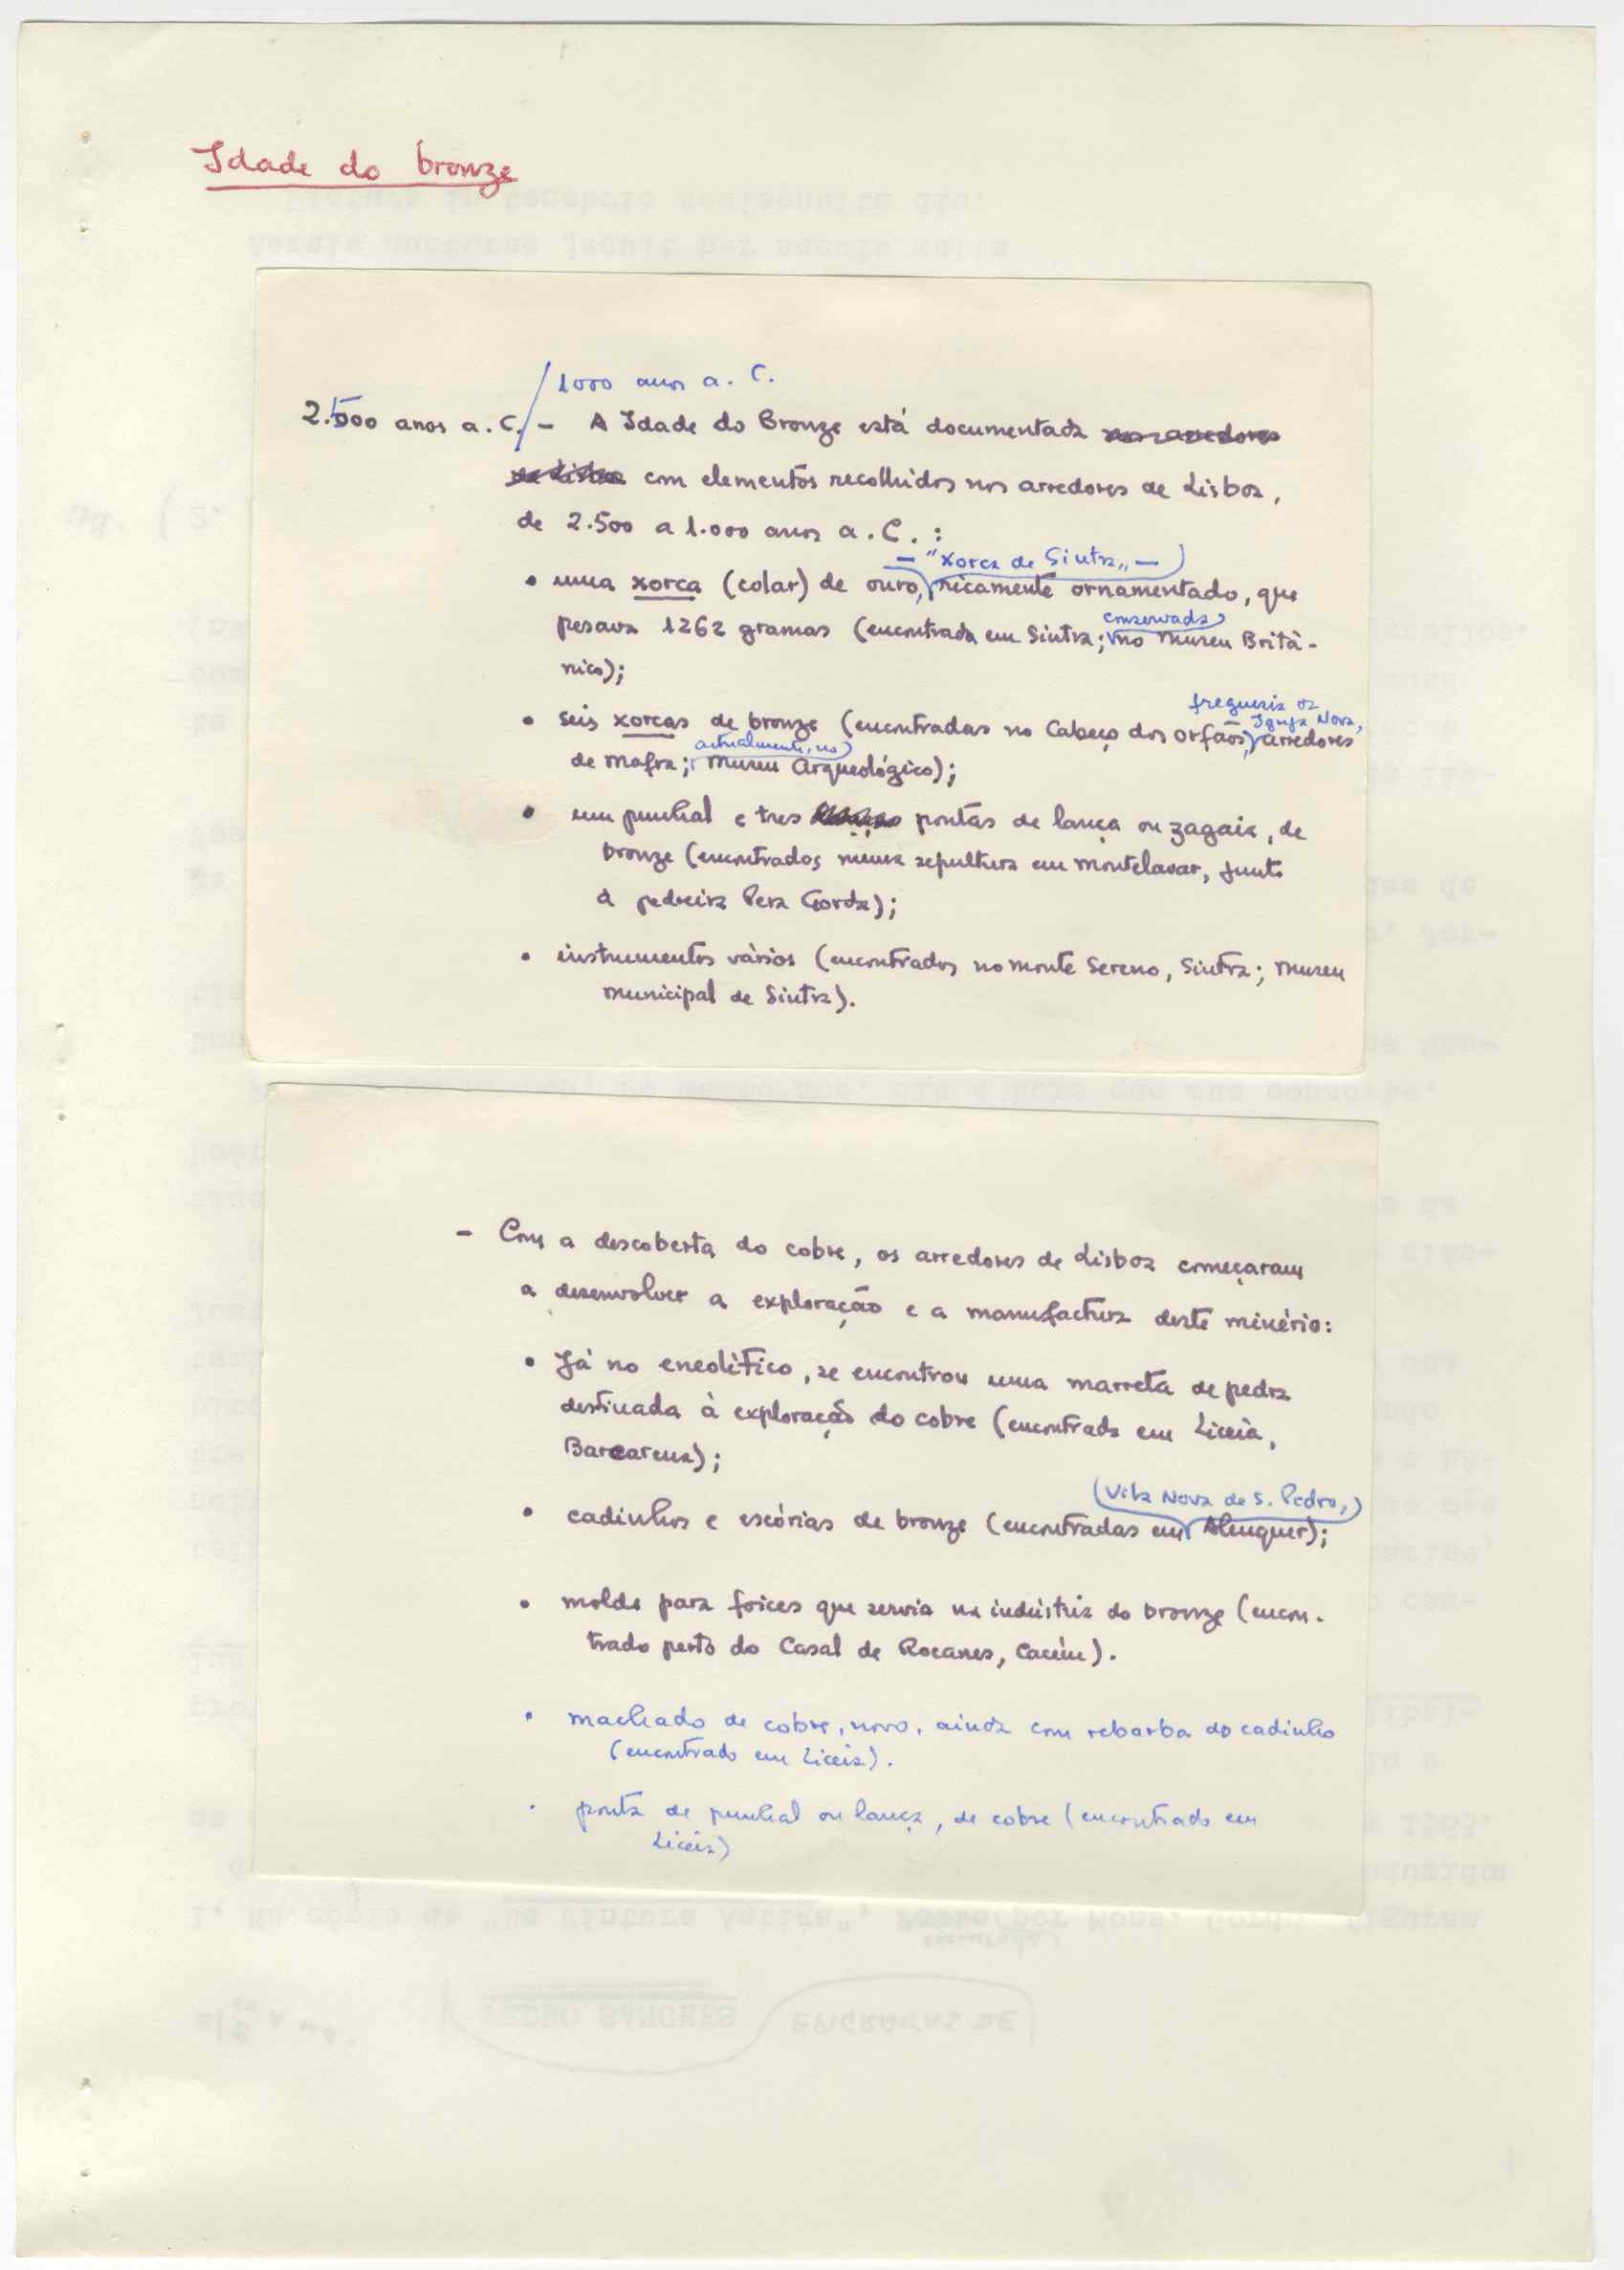 Idade do bronze
/1000 anos a. C.
2.500 anos a. C. - A Idade do Bronze está documentada
com elementos recolhidos nos arredores de Lisboa,
de 2.500 a 1.000 anos a. C. :
- "Xorca de Sintra" -
• uma xorca (colar) de ouro, ricamente ornamentado, que
conservada
pesava 1262 gramas (encontrada em Sintra; no Museu Britâ-
nico);
freguesia da
Igreja Nova,
• seis xorcas de bronze (encontradas no Cabeço dos Orfãos, arredores
actualmente, no
de Mafra; Museu Arqueológico);
• um punhal e tres pontas de lança ou zagaia, de
bronze (encontrados numa sepultura em Montelavar, junto
à pedreira Pera Gorda);
• instrumentos vários (encontrados no Monte Sereno, Sintra; Museu
Municipal de Sintra).
- Com a descoberta do cobre, os arredores de Lisboa começaram
a desenvolver a exploração e a manufactura deste minério:
• Já no eneolítico, se encontrou uma marreta de pedra
destinada à exploração do cobre (encontrada em Liceia,
Barcarena);
(Vila Nova de S. Pedro,)
• cadinhos e escórias de bronze (encontradas em Alenquer);
• molde para foices que servia na indústria do bronze (encon-
trado perto do Casal de Rocanes, Cacém).
• machado de cobre, novo, ainda com rebarba do cadinho
(encontrado em Liceia).
• ponta de punhal ou lança, de cobre (encontrado em
Liceia)